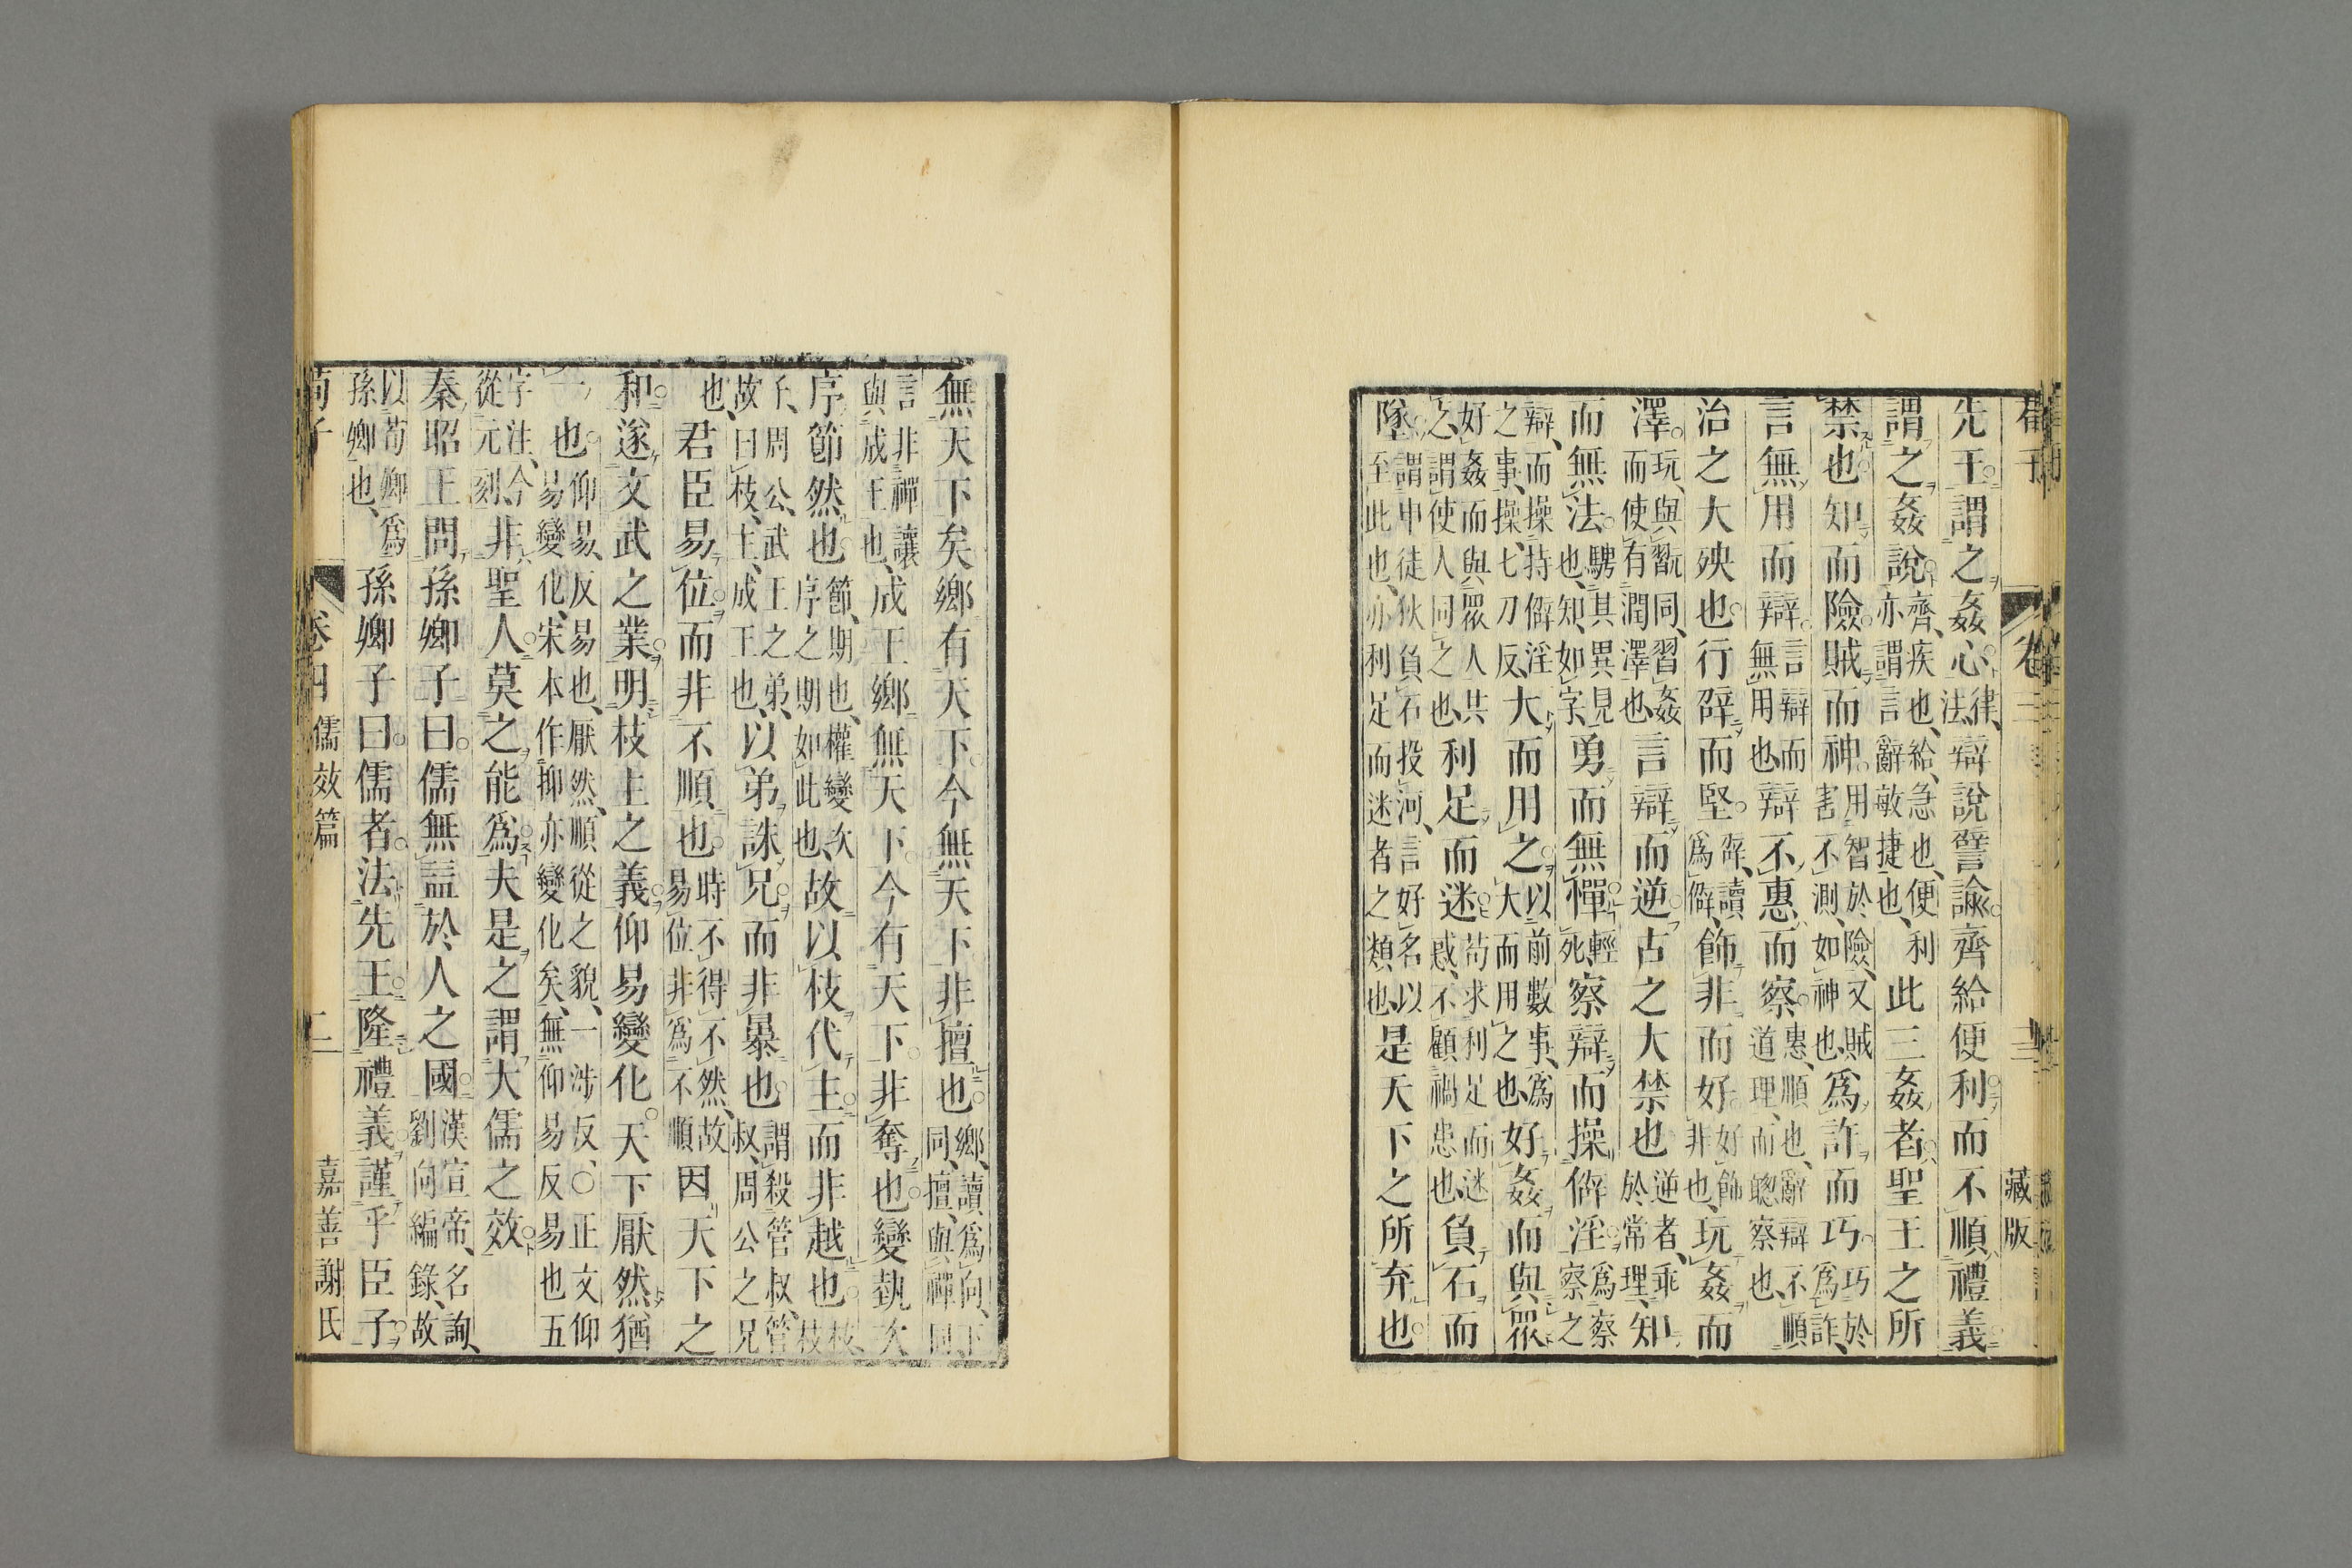 荀子
卷三
三
藏版
先王。謂之姦心。律、法、辯說譬諭。齊給便利。而不順禮義。
謂之姦說。齊、疾也、給、急也、便、利亦謂言辭敏捷也、此三姦者。聖王之所
禁也。知而險。賊而神。用智於險、又賊害不測、如神也、爲詐而巧。巧於爲詐、
言無用而辯。言辯而無用也、辯不惠而察。惠、順也、辭辯不順道理、而聰察也、
治之大殃也。行辟而堅。辟、讀爲僻、飾非而好。好飾非也、玩姦而
澤。玩、與翫同、習姦而使有潤澤也、言辯而逆。古之大禁也。逆者、乖於常理、知
而無法。騁其異見也、知、如字、勇而無憚。輕死、察辯而操僻淫。爲察察之
辯、而操持僻淫之事、操、七刀反、大而用之。以前數事、爲大而用之也、好姦而與眾。
好姦而與眾人共之、謂使人同之也、利足而迷。苟求利足而迷惑、不顧禍患也、負石而
墜。謂申徒狄負石投河、言好名以至此也、亦利足而迷者之類也、是天下之所弃也。
無天下矣。鄉有天下。今無天下。非擅也。鄉、讀爲向、下同、擅、與禪同、
言非禪讓與成王也、成王鄉無天下。今有天下。非奪也。變埶次
序節然也。節、期也、權變次序之期如此也、故以枝代主。而非越也。枝、枝
子、周公、武王之弟、故曰枝、主、成王也、以弟誅兄。而非暴也。謂殺管叔、管叔、周公之兄
也、君臣易位。而非不順也。時不得不然、故易位非爲不順因天下之
和。遂文武之業。明枝主之義。仰易變化。天下厭然猶
一也。仰易、反易也、厭然、順從之貌、一涉反、○正文仰易變化、宋本作抑亦變化矣、無仰易反易也五
字注、今從元刻、非聖人。莫之能爲。夫是之謂大儒之效。
秦昭王問孫卿子曰。儒無益於人之國。漢宣帝、名詢、劉向編錄、故
以荀卿爲孫卿也、孫卿子曰。儒者。法先王。隆禮義。謹乎臣子。
荀子
卷四
儒效篇
二
嘉善謝氏